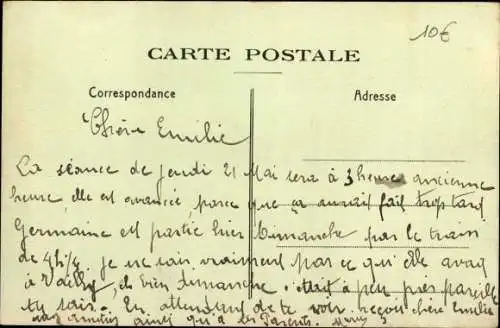 10€
CARTE POSTALE
Correspondance
Adresse
Chère Emilie
La séance de jeudi 21 Mai sera à 3 heures ancienne
heure, elle est avancée, parce que ça aurait fait trop tard
Germaine est partie hier Dimanche par le train
de 4h ¼ je ne sais vraiment pas ce qu'elle avait
à , de bien dimanche était à peu près pareille
tu sais. En attendant de te voir, reçois chère Emilie
mes amitiés ainsi qu'à tes Parents.